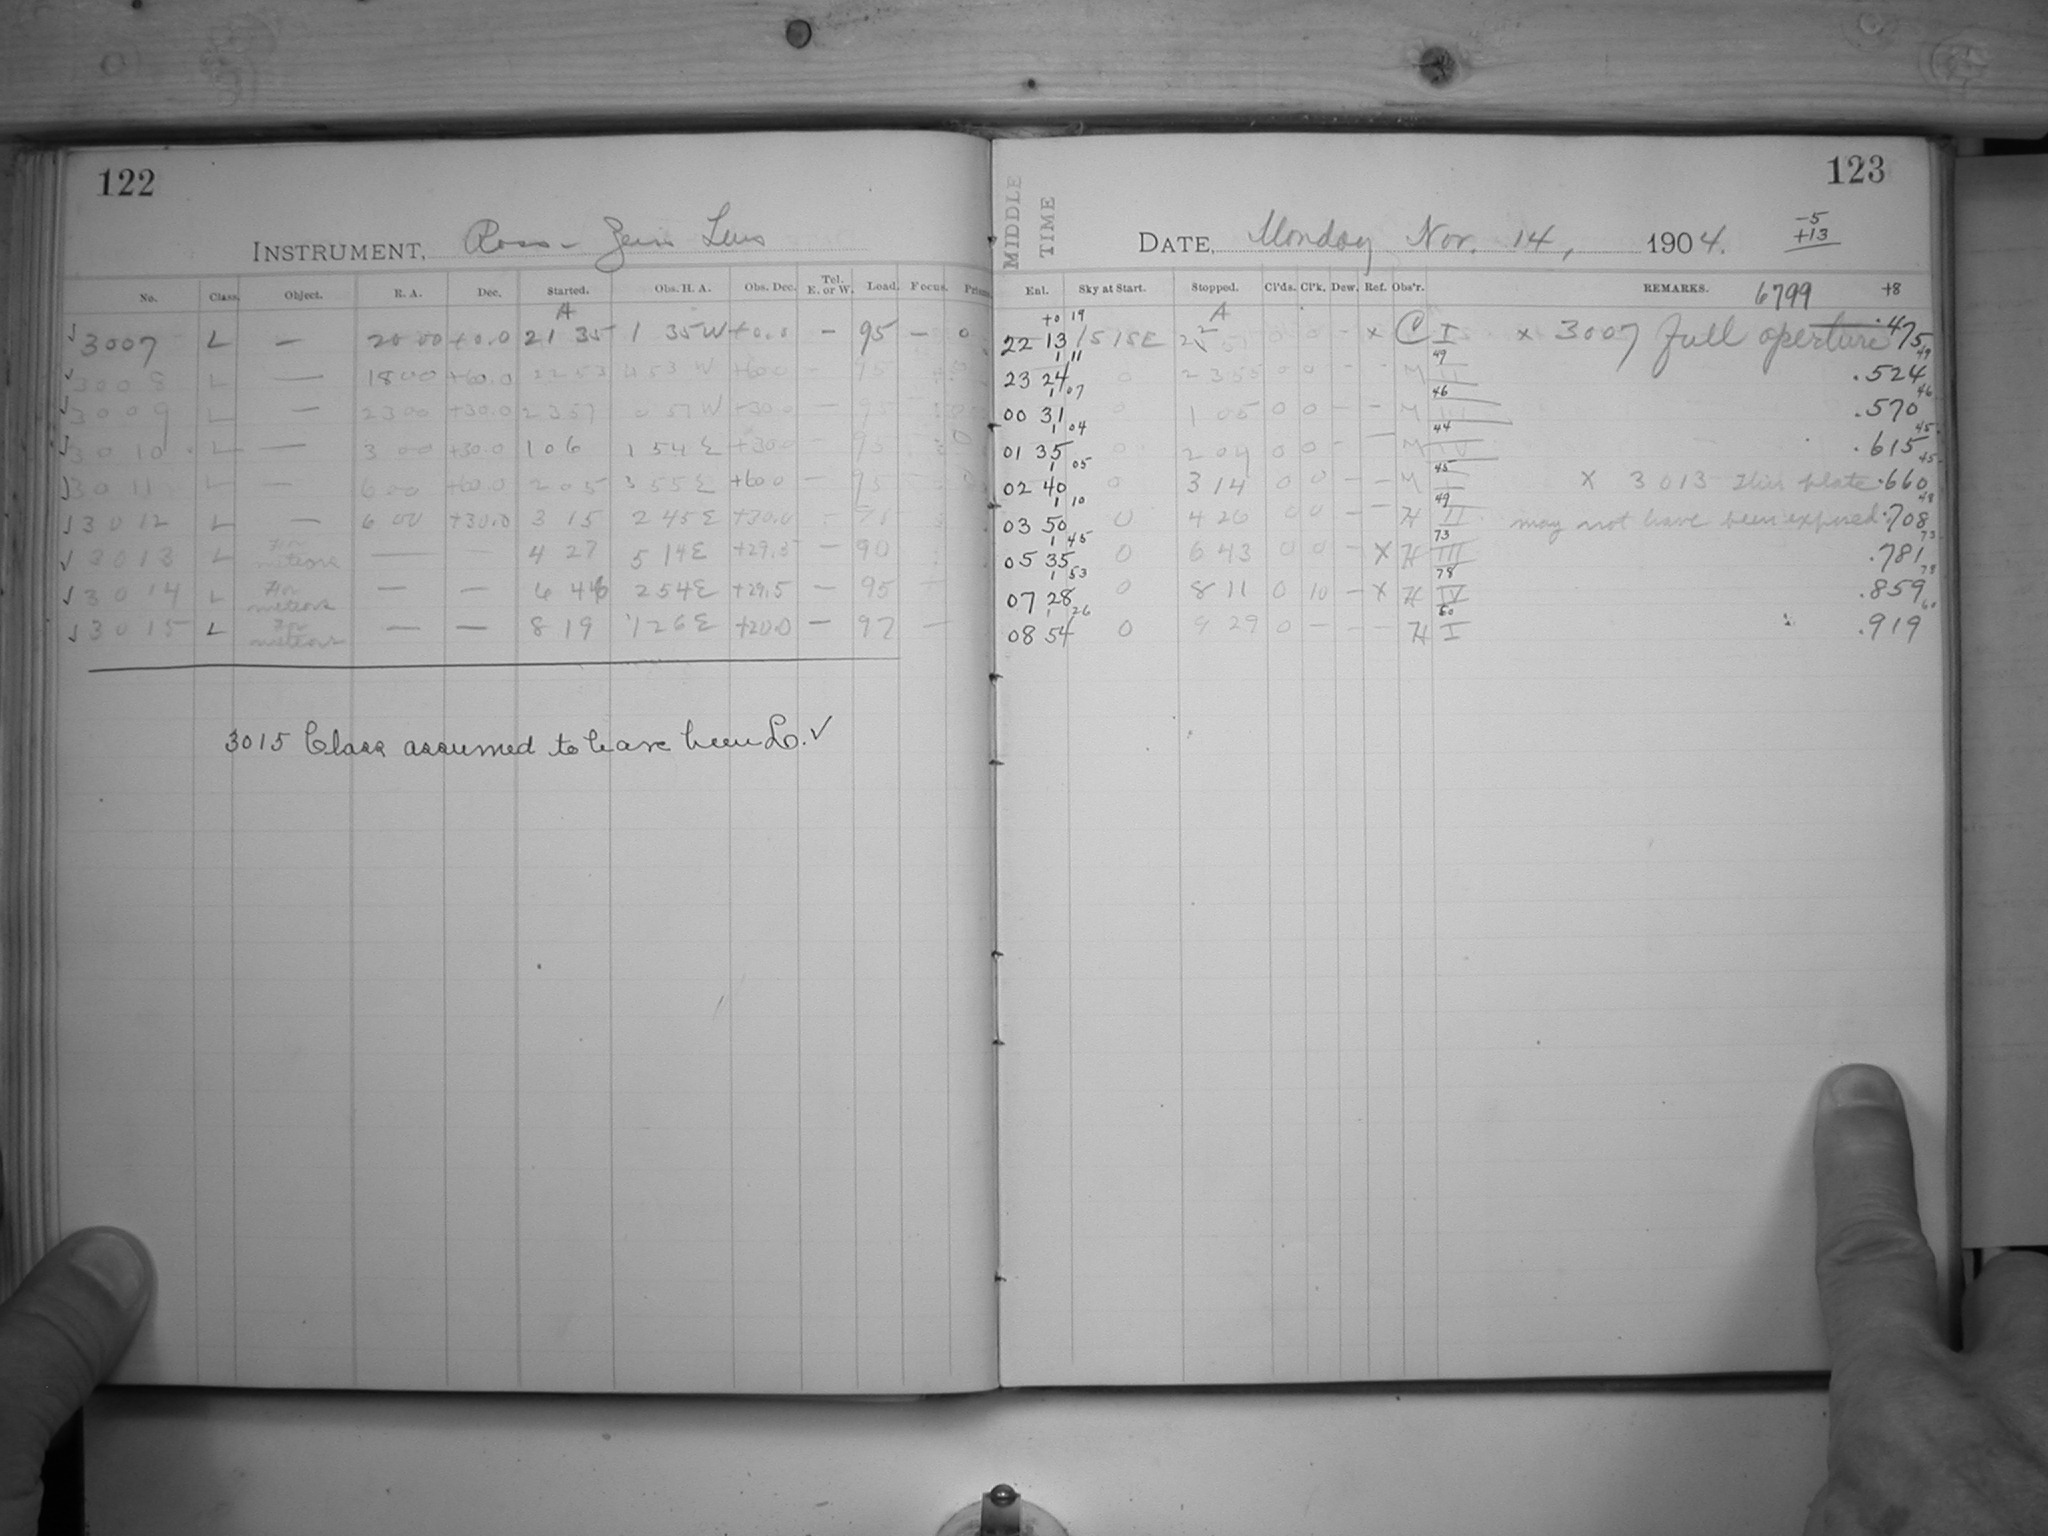 122
INSTRUMENT, Ross-Zeiss Lens
No. Class. Object. R. A. Dec. Started. Obs. H. A. Obs. Dec. Tel. E. or W. Load. Focus. Prism.
A
3007 L — 20 00 +0.0 21 35 1 35W +0.0 — 95 — 0
3008 L — 18 00 +60.0 22 53 4 53 W +60.0 — 95
3009 L — 23 00 +30.0 23 57 0 57 W +30.0 — 95
3010 L — 3 00 +30.0 1 06 1 54 E +30.0 — 95 0
3011 L — 6 00 +60.0 2 05 3 55 E +60.0 — 95
3012 L — 6 00 +30.0 3 15 2 45 E +30.0 —
3013 L For meteors — — 4 27 5 14 E +29.5 — 90
3014 L For meteors — — 6 46 2 54 E +29.5 — 95 —
3015 L For meteors — — 8 19 1 26 E +20.0 — 97 —
3015 Class assumed to have been L. ✓
MIDDLE TIME
123
DATE, Monday Nov. 14, 1904.
-5
+13
Enl. Sky at Start. Stopped. Cl'ds. Cl'k. Dew. Ref. Obs'r. REMARKS. 6799 +8
+0 19 A
22 13 1515E 22 51 0 0 — x C I x 3007 full aperture .475
1 11 49 49
23 24 0 23 55 0 0 — — M II .524
1 07 46 46
00 31 0 1 05 0 0 — — M III .570
1 04 44 45
01 35 0 2 04 0 0 — — M IV .615
1 05 45 45
02 40 0 3 14 0 0 — — M I x 3013 This plate .660
1 10 49 48
03 50 0 4 26 0 0 — — H II may not have been exposed .708
1 45 73 73
05 35 0 6 43 0 0 — X H III .781
1 53 78 78
07 28 0 8 11 0 10 — x H IV .859
1 26 60 60
08 54 0 9 29 0 — — — H I .919